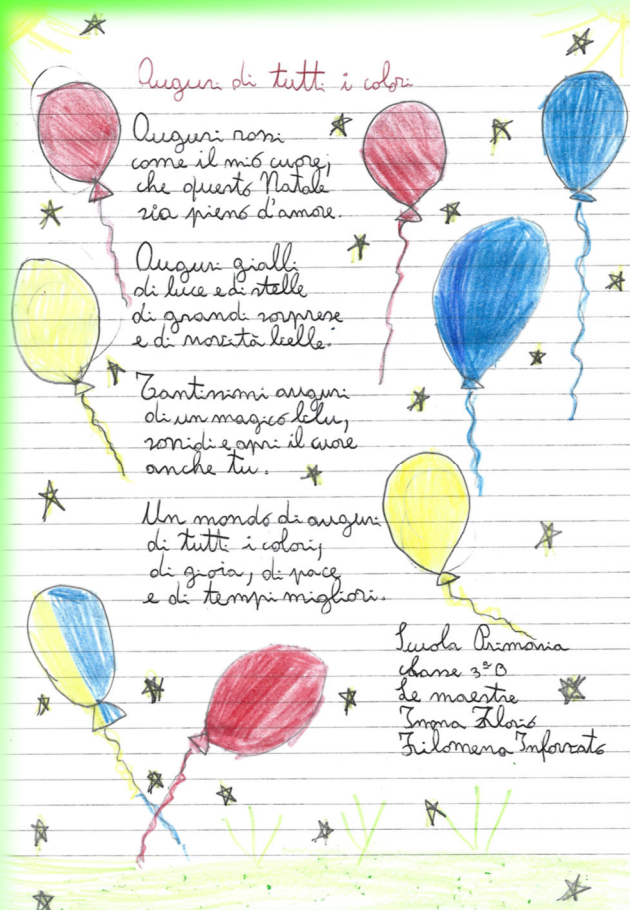 Auguri di tutti i colori
Auguri rossi
come il mio cuore,
che questo Natale
sia pieno d'amore.
Auguri gialli
di luce e di stelle
di grandi sorprese
e di novità belle.
Tantissimi auguri
di un magico blu,
sorridi e apri il cuore
anche tu.
Un mondo di auguri
di tutti i colori,
di gioia, di pace
e di tempi migliori.
Scuola Primaria
classe 3ª B
Le maestre
Filomena Inforzato